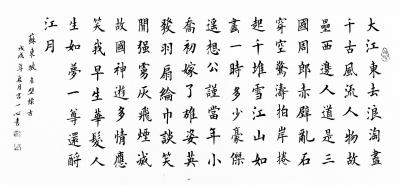 大江東去浪淘盡
千古風流人物故
壘西邊人道是三
國周郎赤壁亂石
穿空驚濤拍岸捲
起千堆雪江山如
畫一時多少豪傑
遙想公謹當年小
喬初嫁了雄姿英
發羽扇綸巾談笑
間强虜灰飛煙滅
故國神遊多情應
笑我早生華髮人
生如夢一尊還酹
江月
蘇東坡赤壁懷古
戊戌年五月一心書